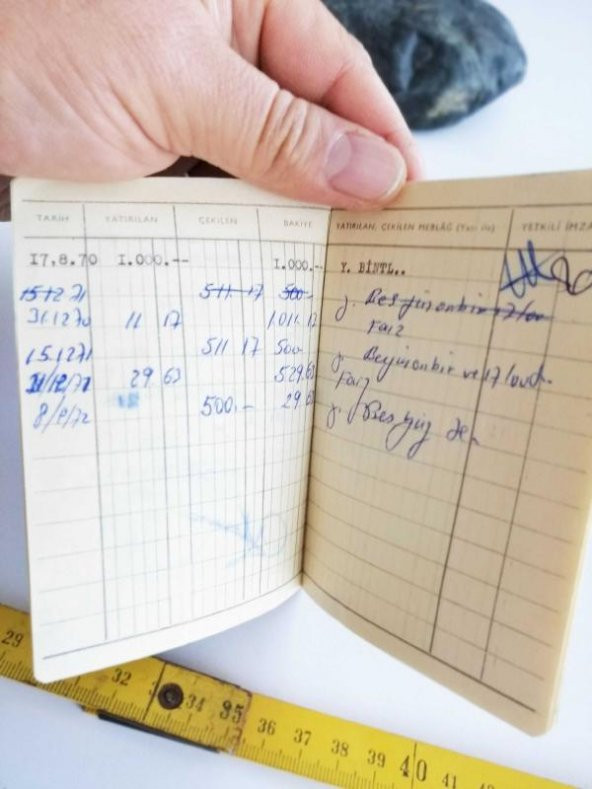 TARİH YATIRILAN ÇEKİLEN BAKİYE YATIRILAN, ÇEKİLEN MEBLÂĞ (Yazı ile) YETKİLİ İMZA
17.8.70 1.000.-- 1.000.-- Y. BİNTL..
15 12 71 511 17 500-
31.12 70 11 17 1.011.17 Faiz
15.12 71 511 17 500- y. Beşyüzonbir ve 17/
31/12/71 29 63 529.63 Faiz
8/2/72 500.- 29.63 y. Beşyüz
29 32 34 35 36 37 38 39 40 41